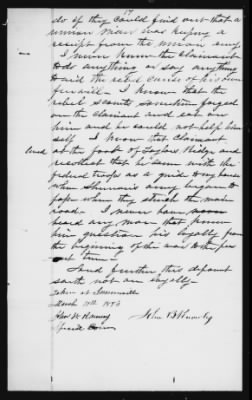 17
do if they could find out that a
union man was keeping a
receipt from the union army
I never knew the claimant
to do anything or say anything
to aid the rebel cause of his own
free will - I know that the
rebel scouts sometimes foraged
on the claimant and eat on
him and he could not help him
self. I know that claimant
lived at the foot of Taylors Ridge and
recollect that he sent with the
federal troops as a guide to my house
when Shermans army began to
pass when they struck the main
road. I never have
heard any man that knew
him question his loyalty from
the beginning of the war to the
time
And further this deponent
saith not on loyalty
Taken at Summerville
March 1873